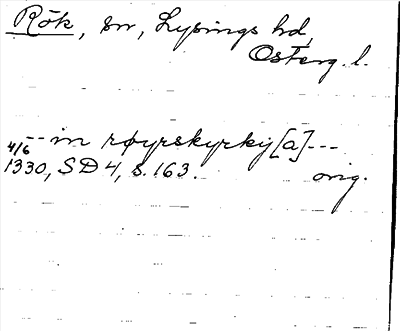 Rök, sn, Lysings hd,
Österg. l.
-- in røyrskyrky[a]---
4/6 1330, SD 4, s. 163. orig.